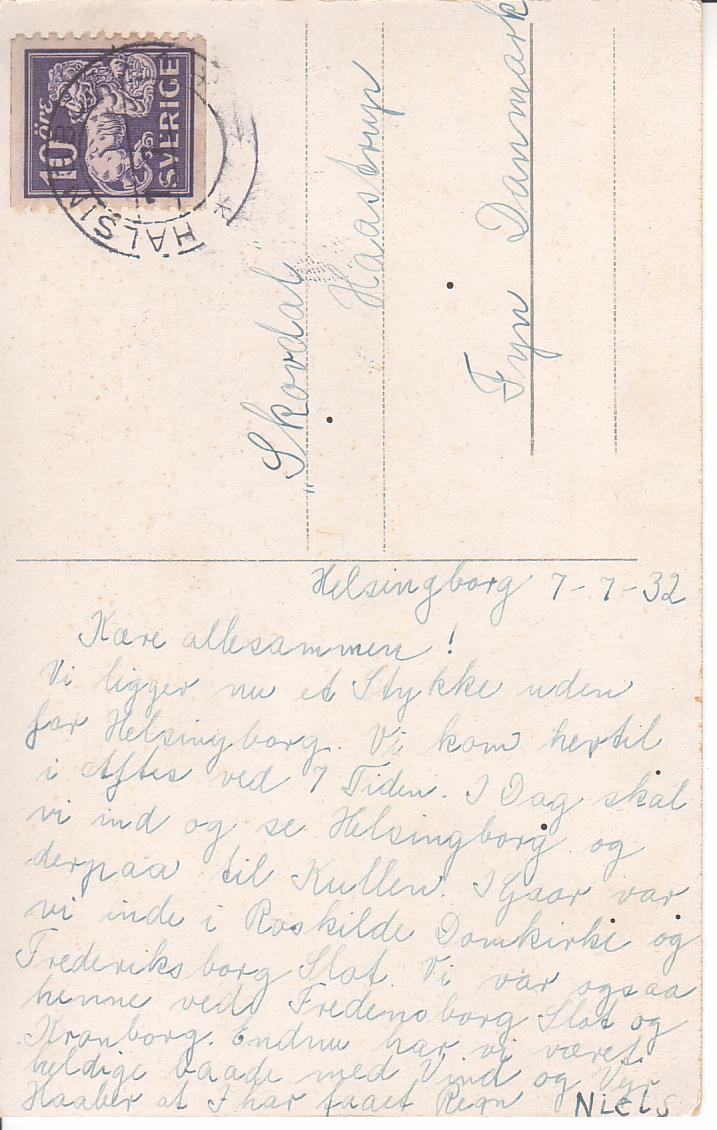 10 ÖRE
SVERIGE
HÄLSIN
„Skovdal
Haastrup
Fyn Danmark
Helsingborg 7-7-32
Kære allesammen!
Vi ligger nu et Stykke uden
for Helsingborg. Vi kom hertil
i Aftes ved 7 Tiden. I Dag skal
vi ind og se Helsingborg og
derpaa til Kullen. I Gaar var
vi inde i Roskilde Domkirke og
Frederiksborg Slot. Vi var ogsaa
henne ved Fredensborg Slot og
Kronborg. Endnu har vi været
heldige baade med Vind og Vejr
Haaber at I har faaet Regn
NIELS